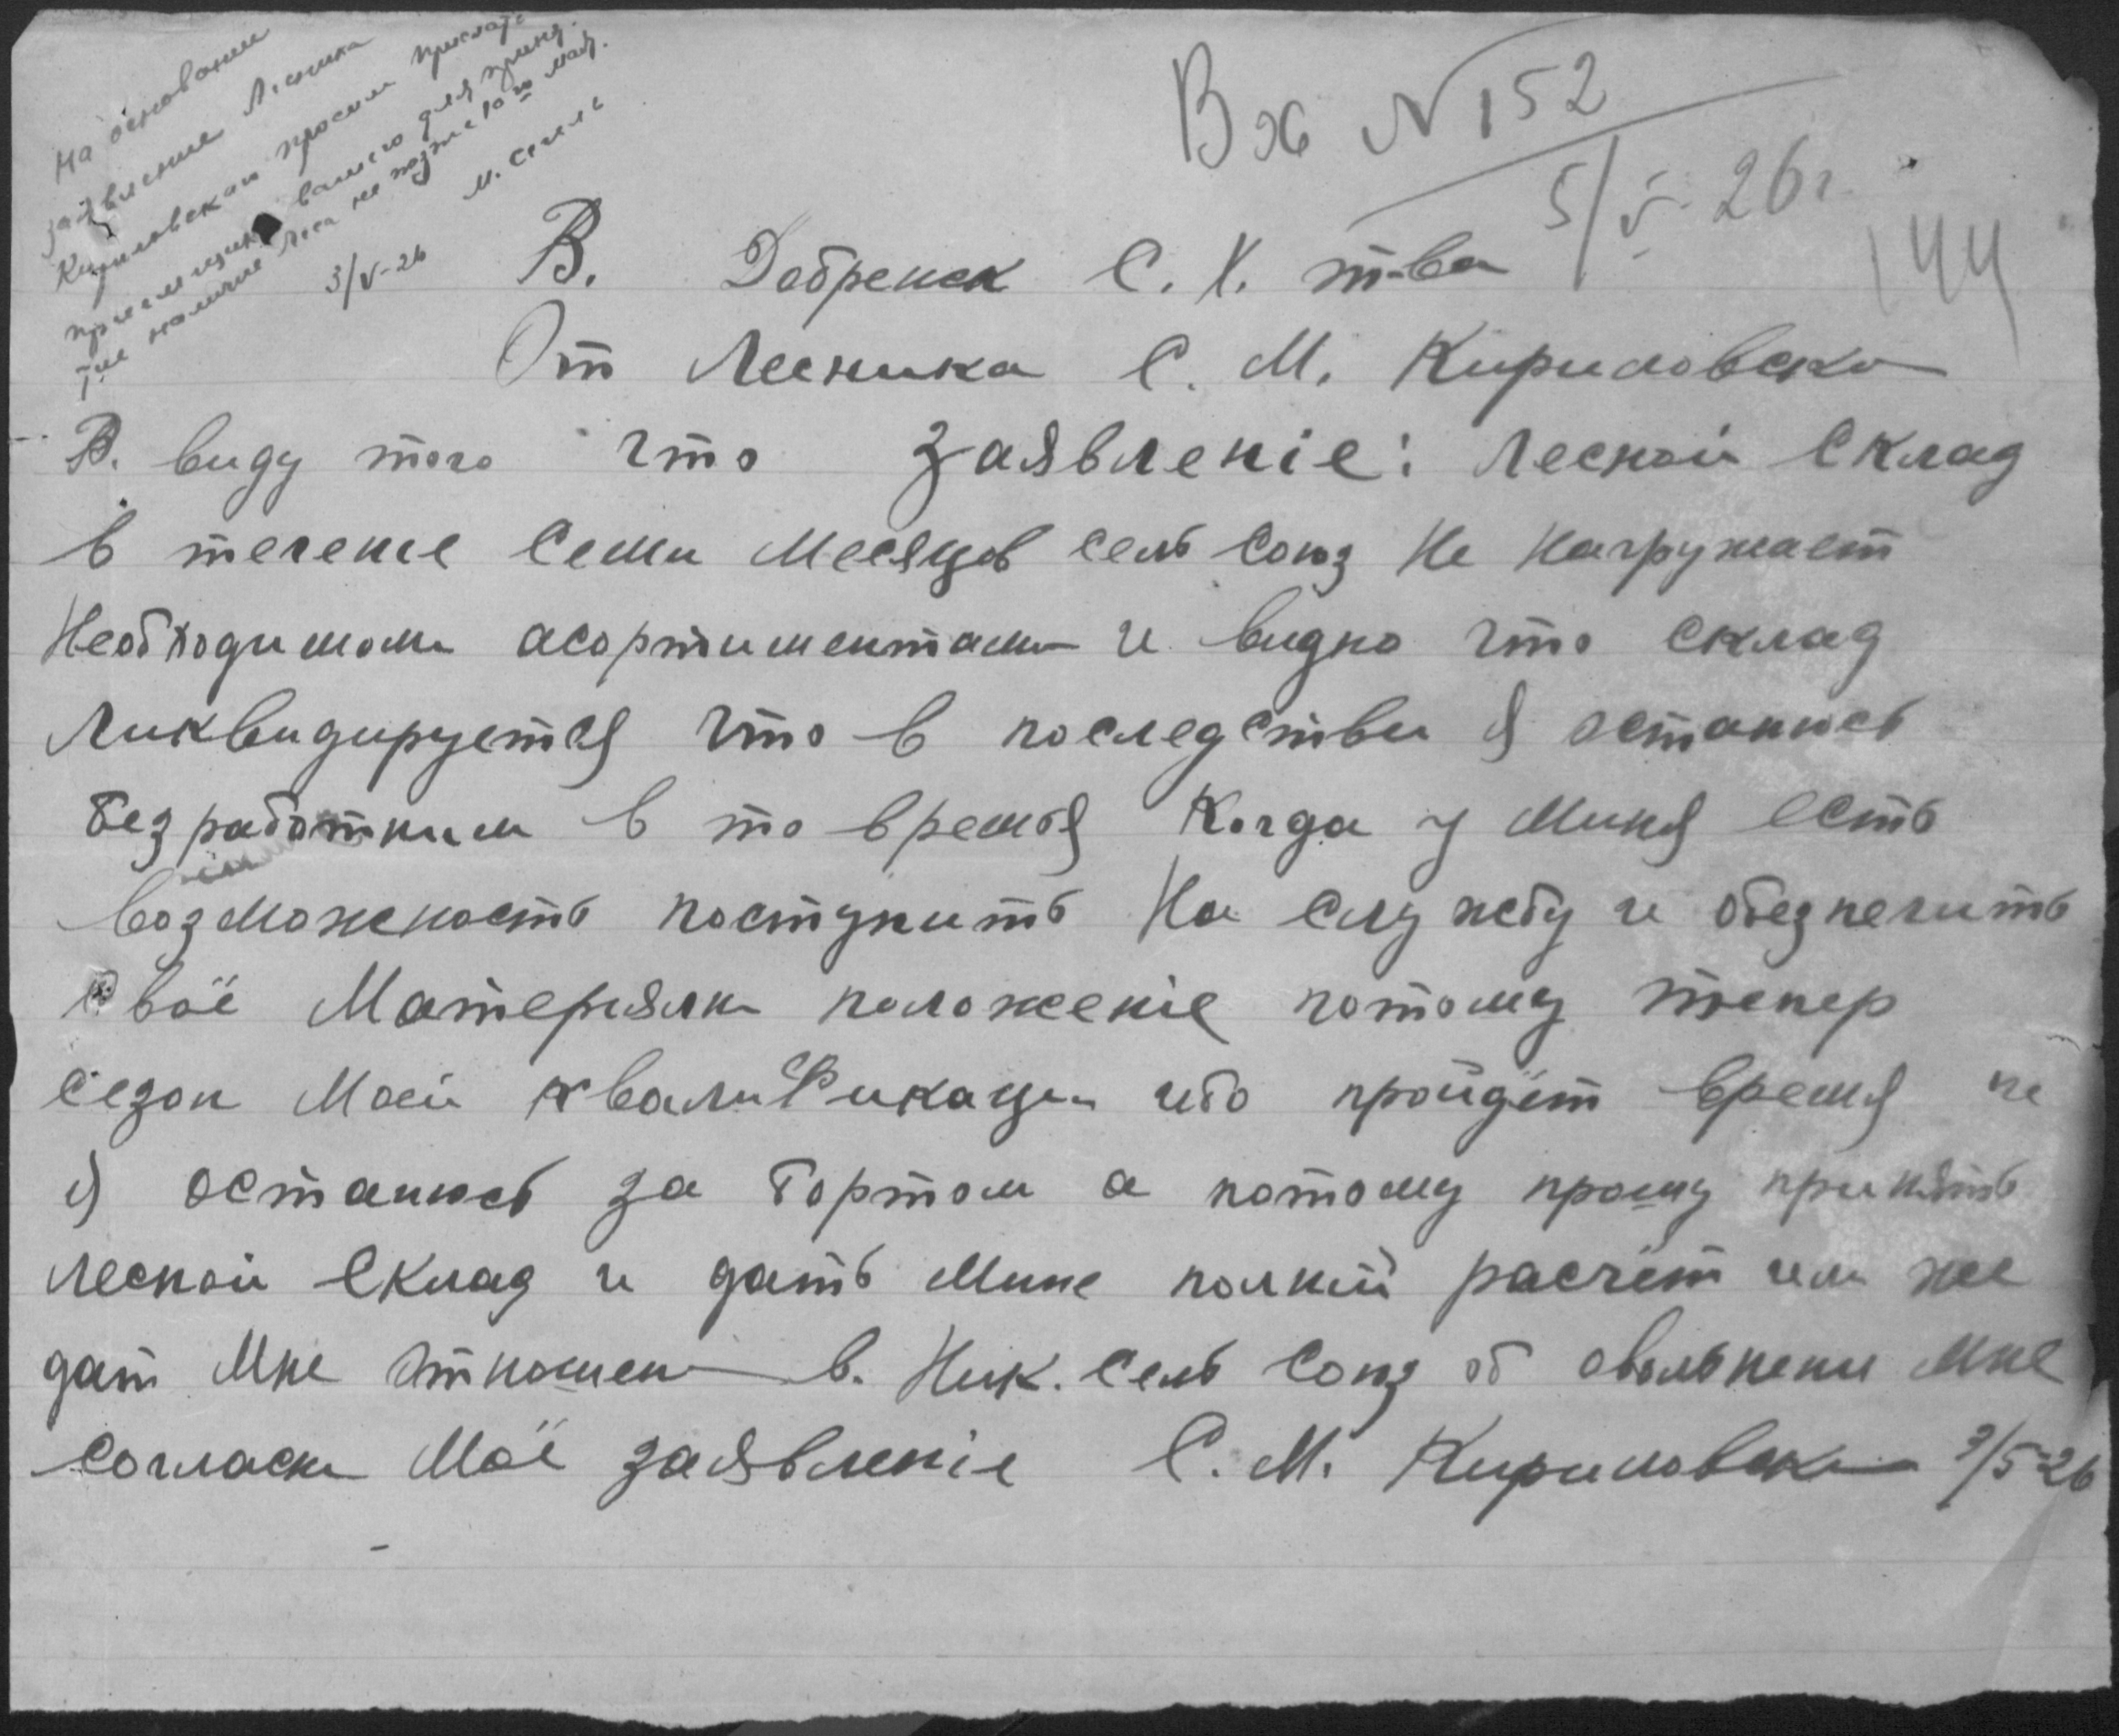 На основании
заявление Лесника
Кириловскаи просим прислать
приемщика вашего для приня
тие наличие леса не позже 10го мая.
М. Сегель
3/V-26
Вх №152
5/V-26г.
144
В. Добренск С. Х. т-ва
От Лесника С. М. Кириловско
В. виду того что заявленіе: лесной склад
в течение семи месяцов сель союз не нагружает
необходимоми асортиментами и видно что склад
ликвидируется что в последстви я останюсь
безработним в то времья когда у миня есть
возможность поступить на службу и обезпечить
своё матерялн положеніе потому тепер
сезон моей квалификации ибо пройдёт время и
я останюсь за бортом а потому прошу принять
лесной склад и дать мине полний расчёт или же
дат мне отношен в. Ник. сель союз об овольнени мне
согласн моё заявленіе С. М. Кириловски 3/5-26